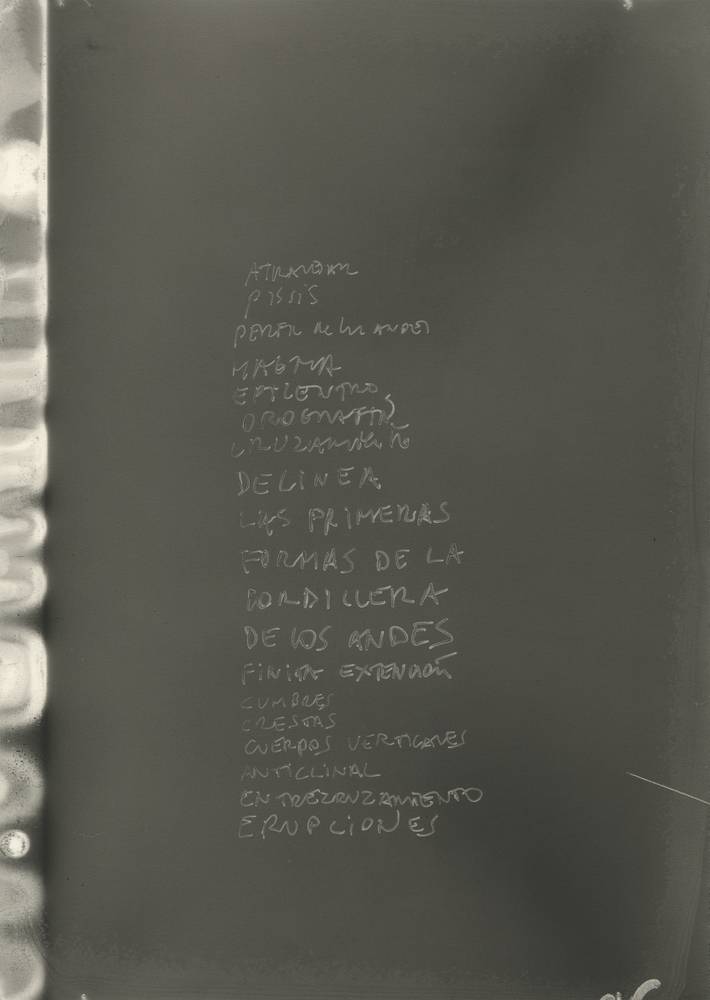 PISSIS
PERFIL de los ANDES
MAGMA
EPICENTRO
OROGRAFIA
CRUZAMIENTO
DELINEA
LAS PRIMERAS
FORMAS DE LA
CORDILLERA
DE LOS ANDES
FINITA EXTENSIÓN
CUMBRES
CRESTAS
CUERPOS VERTICALES
ANTICLINAL
ENTRECRUZAMIENTO
ERUPCIONES